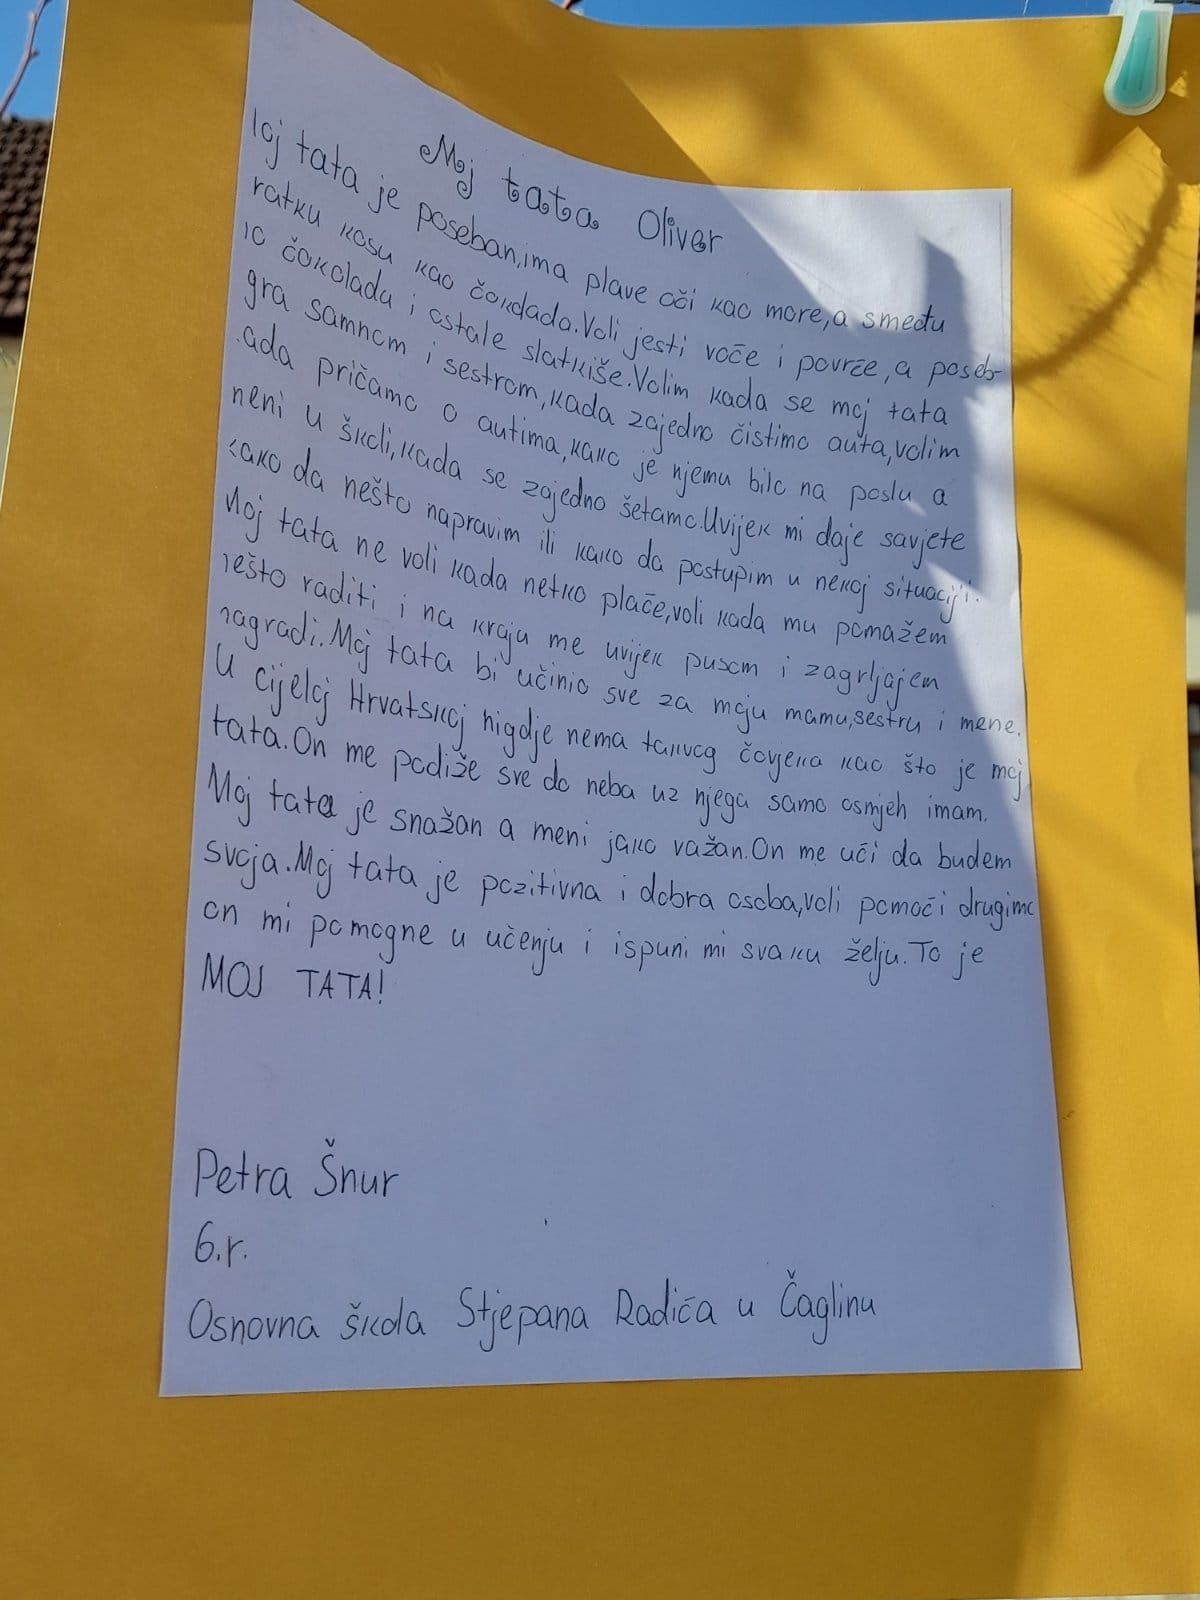 Moj tata Oliver
Moj tata je poseban,ima plave oči kao more,a smeđu
kratku kosu kao čokolada.Voli jesti voće i povrće,a poseb-
no čokoladu i ostale slatkiše.Volim kada se moj tata
igra samnom i sestrom,kada zajedno čistimo auta,volim
kada pričamo o autima,kako je njemu bilo na poslu a
meni u školi,kada se zajedno šetamo.Uvijek mi daje savjete
kako da nešto napravim ili kako da postupim u nekoj situaciji.
Moj tata ne voli kada netko plače,voli kada mu pomažem
nešto raditi i na kraju me uvijek pusom i zagrljajem
nagradi.Moj tata bi učinio sve za moju mamu,sestru i mene.
U cijeloj Hrvatskoj nigdje nema takvog čovjeka kao što je moj
tata.On me podiže sve do neba uz njega samo osmjeh imam.
Moj tata je snažan a meni jako važan.On me uči da budem
svoja.Moj tata je pozitivna i dobra osoba,voli pomoći drugima
on mi pomogne u učenju i ispuni mi svaku želju.To je
MOJ TATA!
Petra Šnur
6.r.
Osnovna škola Stjepana Radića u Čaglinu